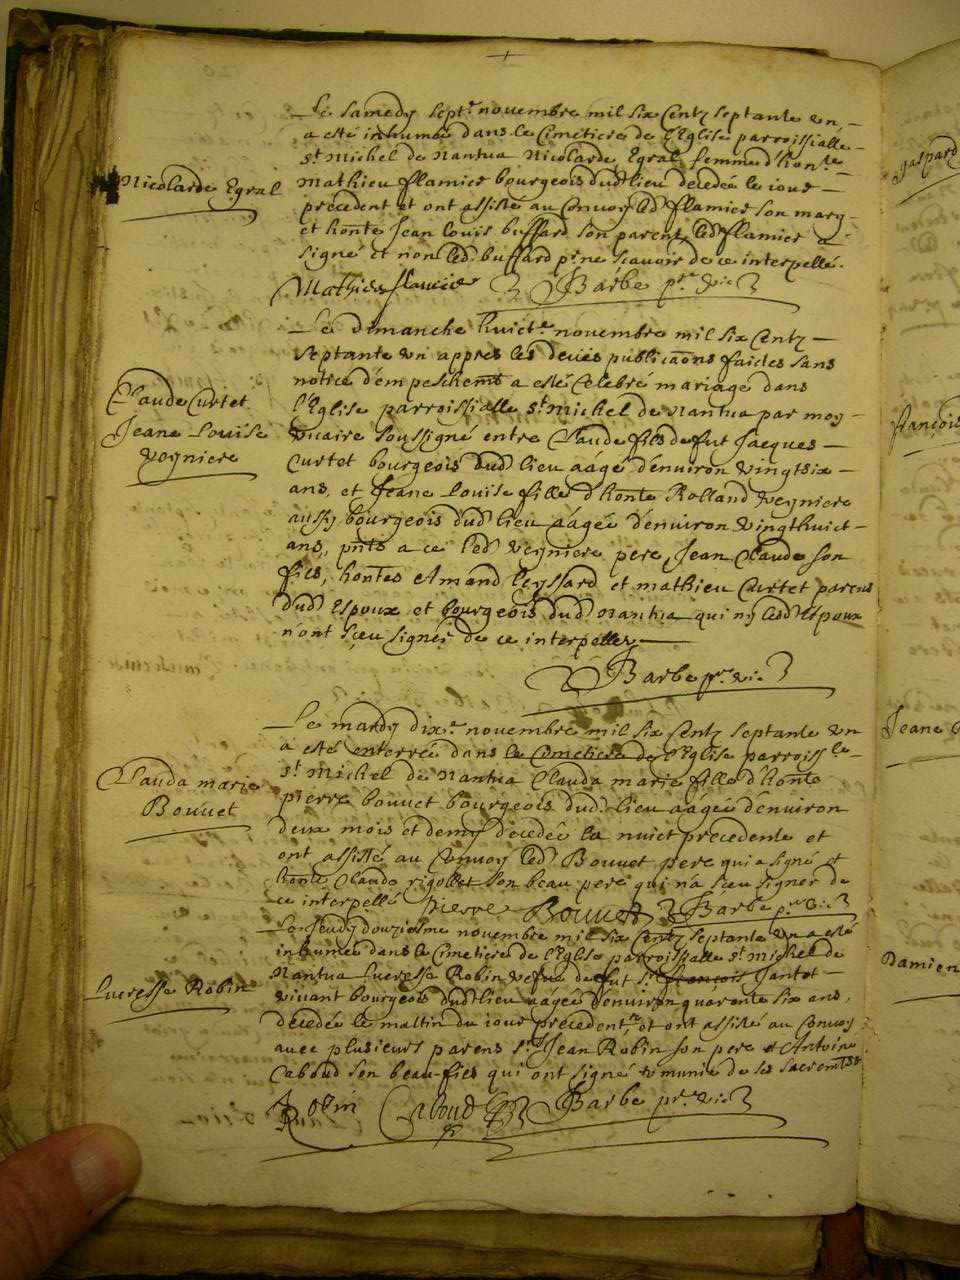 Le samedy sept.e novembre mil six centz septante un
a esté inhumée dans le cimetiere de l'Eglise parroissialle
st Michel de Nantua Nicolarde Egral femme d'hon.le
Nicolarde Egral
Mathieu flamier bourgeois dud lieu decedée le iour
précedent et ont assisté au Convoy led flamier son mary
et honte Jean Louis buffard son parent, led flamier a
signé et non led buffard p.r ne scavoir de ce interpellé.
Mathieu flamier Barbe p.r vic
Le dimanche huict.e novembre mil six centz
septante un appres les deües publicaons faictes sans
notice d'empeschemt a esté celebré mariage dans
l'Eglise parroissialle st Michel de Nantua par moy
Claude Curtet
Jeane Louise
veyniere
vicaire soussigné entre Claude fils de fut Jacques
Curtet bourgeois dud lieu aagé d'environ vingtsix
ans, et Jeane Louise fille d'honte Rolland veyniere
aussy bourgeois dud lieu aagée d'environ vingthuict
ans, pnts a ce led veyniere pere, Jean Claude son
fils, hontes Amand leyssard et mathieu Curtet parens
dud Espoux et bourgeois dud Nantua qui ny lesd Espoux
n'ont sçeu signer de ce interpellez
Barbe p.r vic
Le mardy dix.e novembre mil six centz septante un
a esté enterrée dans le cimetiere de l'Eglise parroiss.le
st Michel de Nantua Clauda marie fille d'honte
Clauda marie
Bouvet
pierre bouvet bourgeois dud lieu aagée d'environ
deux mois et demy decedée la nuict precedente et
ont assisté au Convoy led Bouvet pere qui a signé et
honte Claude rigollet son beau pere qui n'a sceu signer de
ce interpellé pierre Bouvet Barbe p.r vic
Le Jeudy douziesme novembre mil six centz septante un a esté
inhumée dans le cimetiere de l'Eglise parroissialle st michel de
Nantua Lucresse Robin vefve de fut sr françois Jantet
Lucresse Robin
vivant bourgeois dud lieu aagée d'environ quarante six ans,
decedée le mattin du iour précedent, et ont assisté au Convoy
avec plusieurs parens sr Jean Robin son pere et Antoine
Caboud son beau-fils qui ont signé munie de ses sacremts
Robin Caboud Barbe p.r vic
gaspard
françois
Jeane
Damien